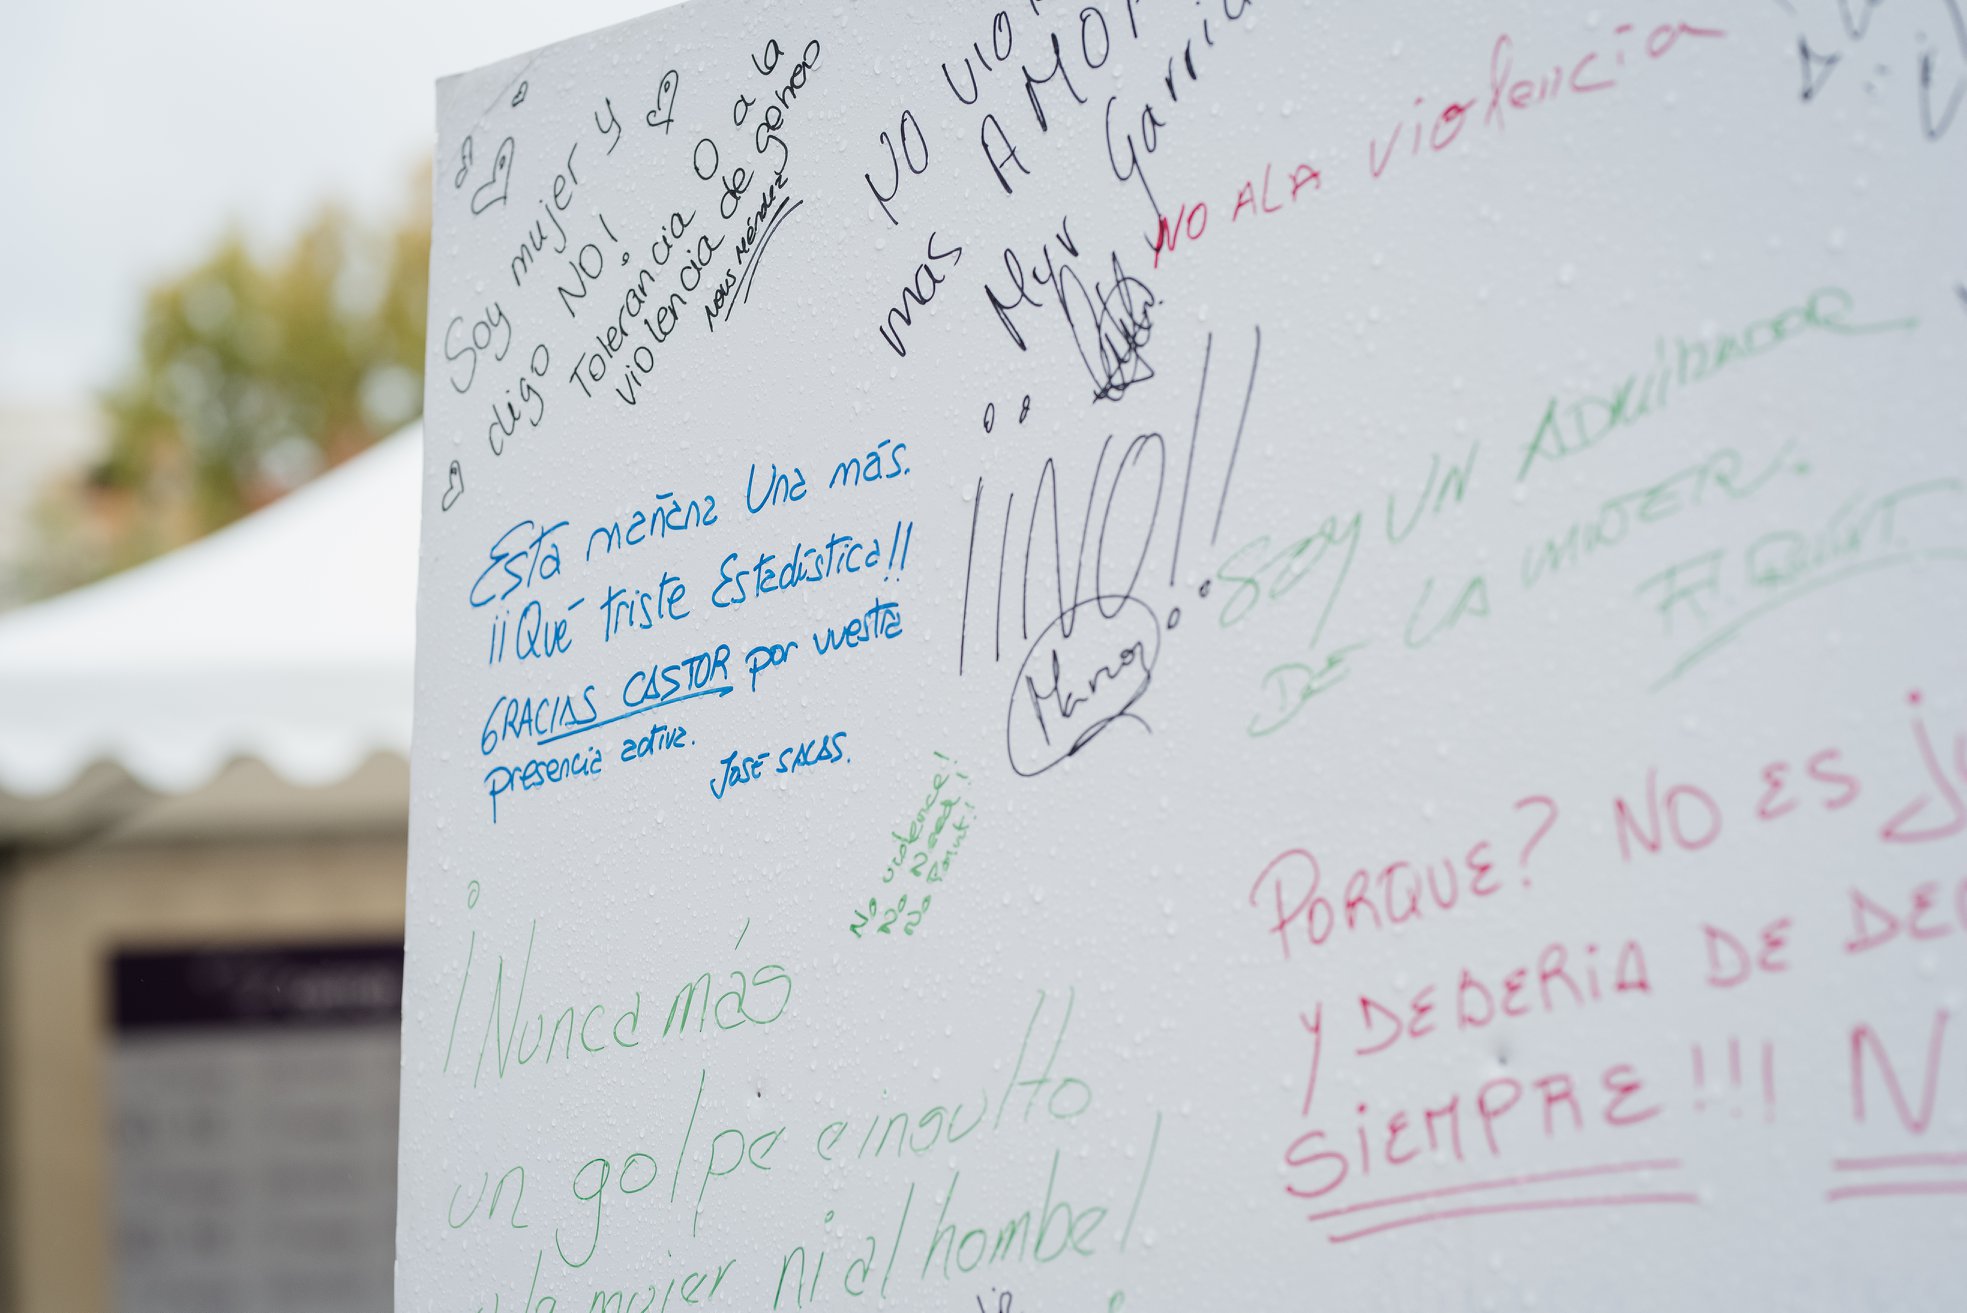 Soy mujer y
digo NO!
Tolerancia O a la
violencia de genero
NO
A
mas
NO A LA violencia
Esta mañana Una más.
¡¡Qué triste Estadística!!
GRACIAS CASTOR por vuestra
presencia activa.
JOSÉ SALAS.
¡¡NO!!
SOY UN ADMIRADOR
DE LA MUJER.
No violence!
no need!
no point!
¡Nunca más
un golpe e insulto
a la mujer ni al hombe!
PORQUE? NO ES
Y DEBERIA DE
SIEMPRE!!! N